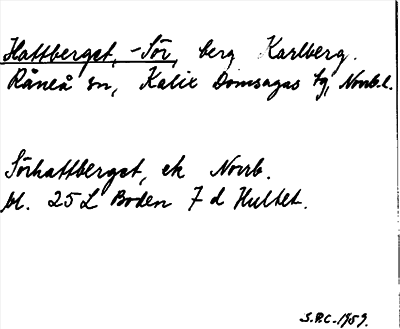 Hattberget, -Sör, berg Karlberg.
Råneå sn, Kalix Domsagas tg, Norrb.l.
Sörhattberget, ek Norrb.
bl. 25 L Boden 7 d Hultet.
S.P.C. 1959.